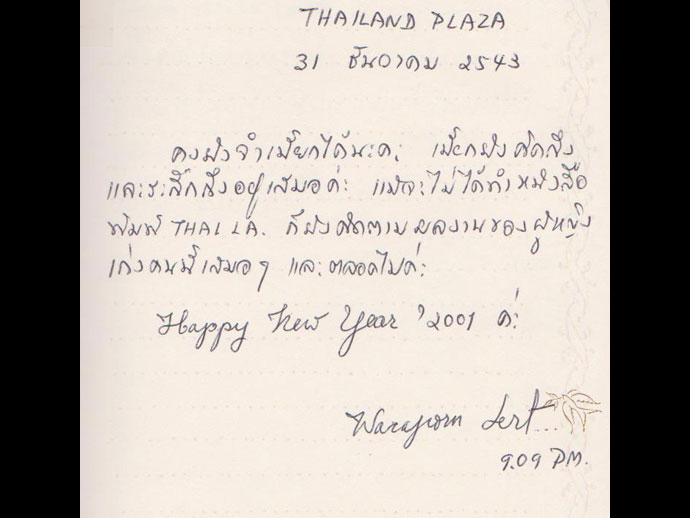 THAILAND PLAZA
31 ธันวาคม 2543
คงยังจำเปี๊ยกได้นะคะ เปี๊ยกยังคิดถึง
และระลึกถึงอยู่เสมอค่ะ แม้จะไม่ได้ทำหนังสือ
พิมพ์ THAI L.A. ก็ยังติดตามผลงานของผู้หญิง
เก่งคนนี้เสมอๆ และตลอดไปค่ะ
Happy New Year '2001 ค่ะ
Waraporn Lert...
9.09 PM.